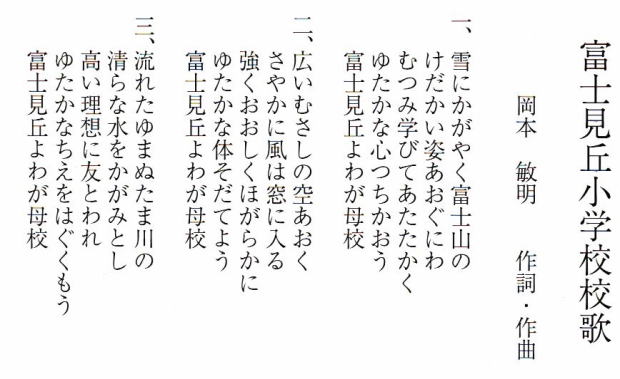 富士見丘小学校校歌
岡本 敏明 作詞・作曲
一、雪にかがやく富士山の
けだかい姿あおぐにわ
むつみ学びてあたたかく
ゆたかな心つちかおう
富士見丘よわが母校
二、広いむさしの空あおく
さやかに風は窓に入る
強くおおしくほがらかに
ゆたかな体そだてよう
富士見丘よわが母校
三、流れたゆまぬたま川の
清らな水をかがみとし
高い理想に友とわれ
ゆたかなちえをはぐくもう
富士見丘よわが母校